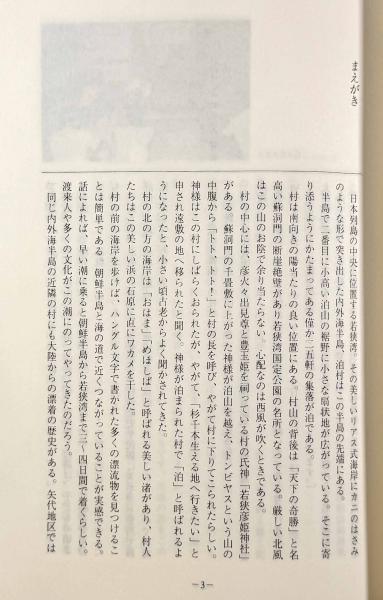 まえがき
日本列島の中央に位置する若狭湾、その美しいリアス式海岸にカニのはさみ
のような形で突き出した内外海半島、泊村はこの半島の先端にある。
半島で二番目に小高い泊山の裾野に小さな扇状地が広がっている。そこに寄
り添うようにかたまってある僅か二五軒の集落が泊である。
村は南向きの陽当たりの良い位置にある。村山の背後は「天下の奇勝」と名
高い蘇洞門の断崖絶壁があり若狭湾国定公園の名所となっている。厳しい北風
はこの山のお陰で余り当たらない、心配なのは西風が吹くときである。
村の中心には、彦火々出見尊と豊玉姫を祠っている村の氏神「若狭彦姫神社」
がある。蘇洞門の千畳敷に上がった神様が泊山を越え、トンビヤスという山の
中腹から「トト、トト！」と村の長を呼び、やがて村に下りてこられたらしい。
神様はこの村にしばらくおられたが、やがて、「一杉千本生える地へ行きたい」と
申され遠敷の地へ移られたと聞く。神様が泊まられた村で「泊」と呼ばれるよ
うになったと、小さい頃古老からよく聞かされてきた。
村の北の方の海岸は「おはま」「めはしば」と呼ばれる美しい渚があり、村人
たちはこの美しい浜の石原に直にワカメを干した。
村の前の海岸を歩けば、ハングル文字で書かれた多くの漂流物を見つけるこ
とは簡単である。朝鮮半島と海の道で近くつながっていることが実感できる。
話によれば、早い潮に乗ると朝鮮半島から若狭湾まで三、四日間で着くらしい。
渡来人や多くの文化がこの潮にのってやってきたのだろう。
同じ内外海半島の近隣の村にも大陸からの漂着の歴史がある。矢代地区では
－3－